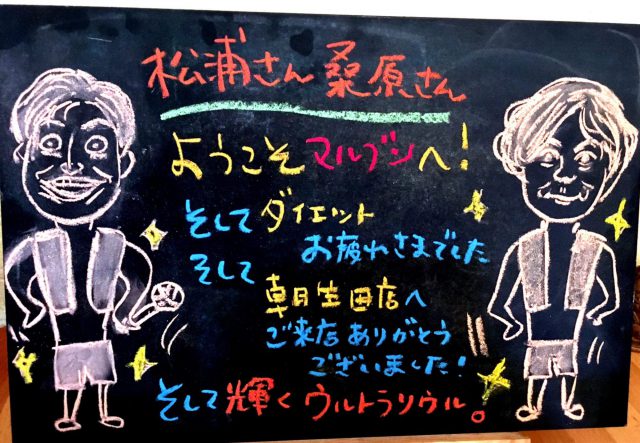 松浦さん 桑原さん
ようこそ マルブシへ!
そして ダイエット
お疲れさまでした
そして
朝生田店へ
ご来店ありがとう
ございました!
そして輝くウルトラソウル!